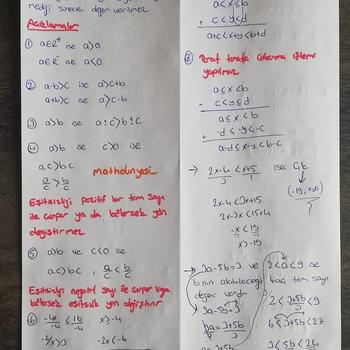 nediği sürece değer verilmez
Açıklamalar
① a∈R⁺ ise a>0
a∈R⁻ ise a<0
② a-b>c ise a>c+b
a+b>c ise a>c-b
③ a>b ise a±c>b±c
④ a>b c>0 ise
a.c>b.c
a/c > b/c
matholunyesi
Eşitsizliği pozitif bir tam sayı
ile çarpar ya da bölersek yön
değiştirmez
⑤ a>b ve c<0 ise
a.c>b.c , a/c < b/c
Eşitsizliği negatif sayı ile çarpar veya
bölersek eşitsizlik yön değiştirir
⑥ -4x/-4 ≤ 16/-4 x≥-4
-x/2>3 2x<-4
a≤x≤b
+ c≤y≤d
a+c≤x+y≤b+d
⑧ Taraf tarafa çıkarma işlemi
yapılmaz
a≤x≤b
- c≤y≤d
a≤x≤b
+ -d≤-y≤-c
a-d≤x-y≤b-c
→ 2x-4/3 < x+5/1 ise Ç.K
(-19,+∞)
2x-4<3x+15
2x-3x<15+4
-x<19
x>-19
→ 3a-5b=3 ve 2<a<9 ise
b nin alabileceği kaç tam sayı
değeri vardır
3a-5b=3
3a=3+5b
2<3+5b/3<9
6<3+5b<27
3<5b<24